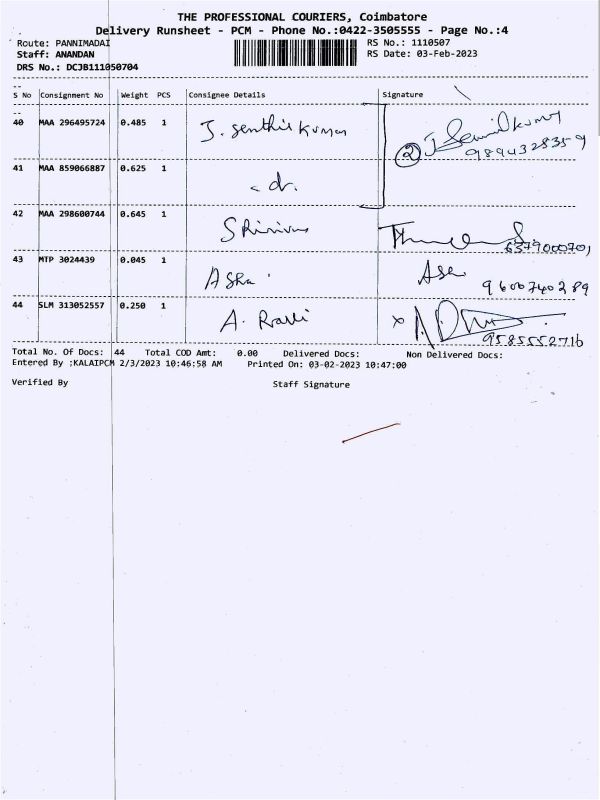 THE PROFESSIONAL COURIERS, Coimbatore
Delivery Runsheet - PCM - Phone No.:0422-3505555 - Page No.:4
Route: PANNIMADAI RS No.: 1110507
Staff: ANANDAN RS Date: 03-Feb-2023
DRS No.: DCJB111050704
S No Consignment No Weight PCS Consignee Details Signature
40 MAA 296495724 0.485 1 J. Senthil Kumar
② J. Senthilkumar
9894328359
41 MAA 859066887 0.625 1 - do.
42 MAA 298600744 0.645 1 Srinivas
43 MTP 3024439 0.045 1 Asha
9600740289
44 SLM 313052557 0.250 1 A. Ravi x
9585552716
Total No. Of Docs: 44 Total COD Amt: 0.00 Delivered Docs: Non Delivered Docs:
Entered By :KALAIPCM 2/3/2023 10:46:58 AM Printed On: 03-02-2023 10:47:00
Verified By Staff Signature